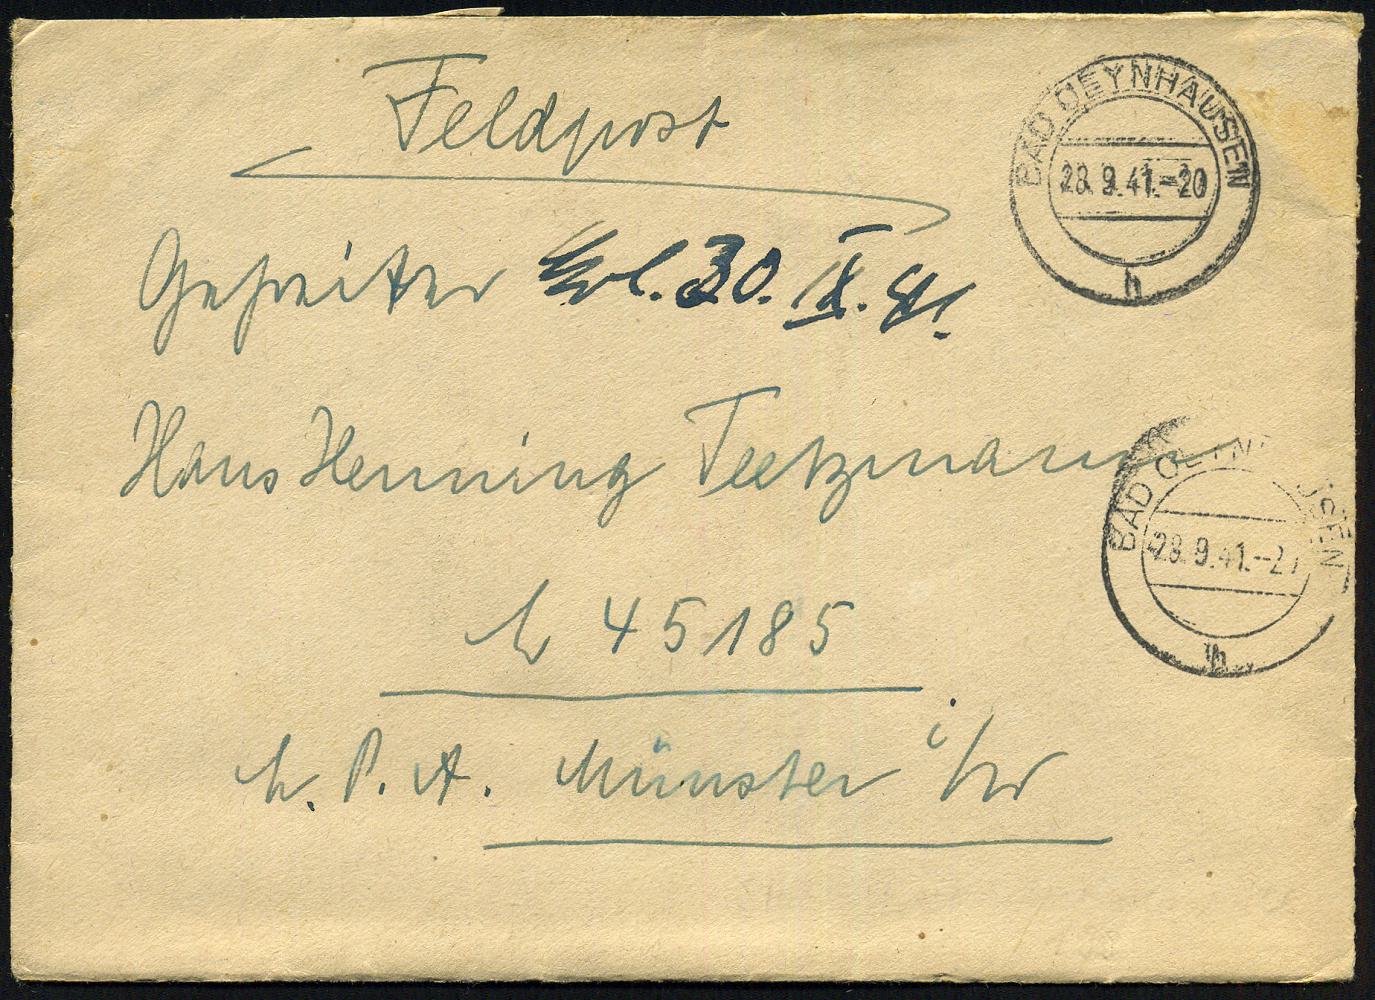 Feldpost
BAD OEYNHAUSEN
28.9.41.-20
h
Gefreiter
Erl. 30. IX. 41.
Hans Henning Teetzmann
BAD OEYNHAUSEN
28.9.41.-2
h
L 45185
L. P. A. Münster i/W